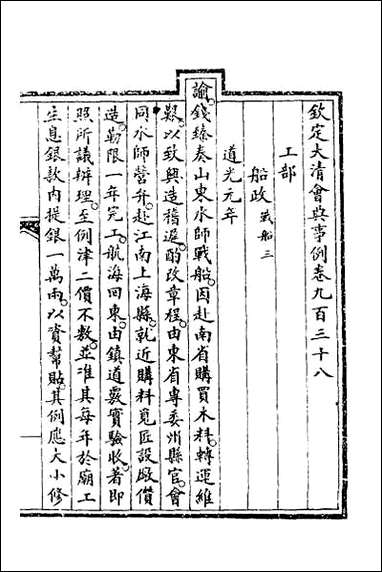 欽定大清會典事例卷九百三十八
工部
船政戰船三
道光元年
諭錢臻奏山東水師戰船因赴南省購買木料轉運維
艱以致興造稽遲酌改章程由東省專委州縣官會
同水師營弁赴江南上海縣就近購料覓匠設廠償
造勒限一年完工航海回東由鎮道覈實驗收著即
照所議辦理至例津二價不敷並准其每年於廟工
生息銀款內提銀一萬兩以資幫貼其例應大小修